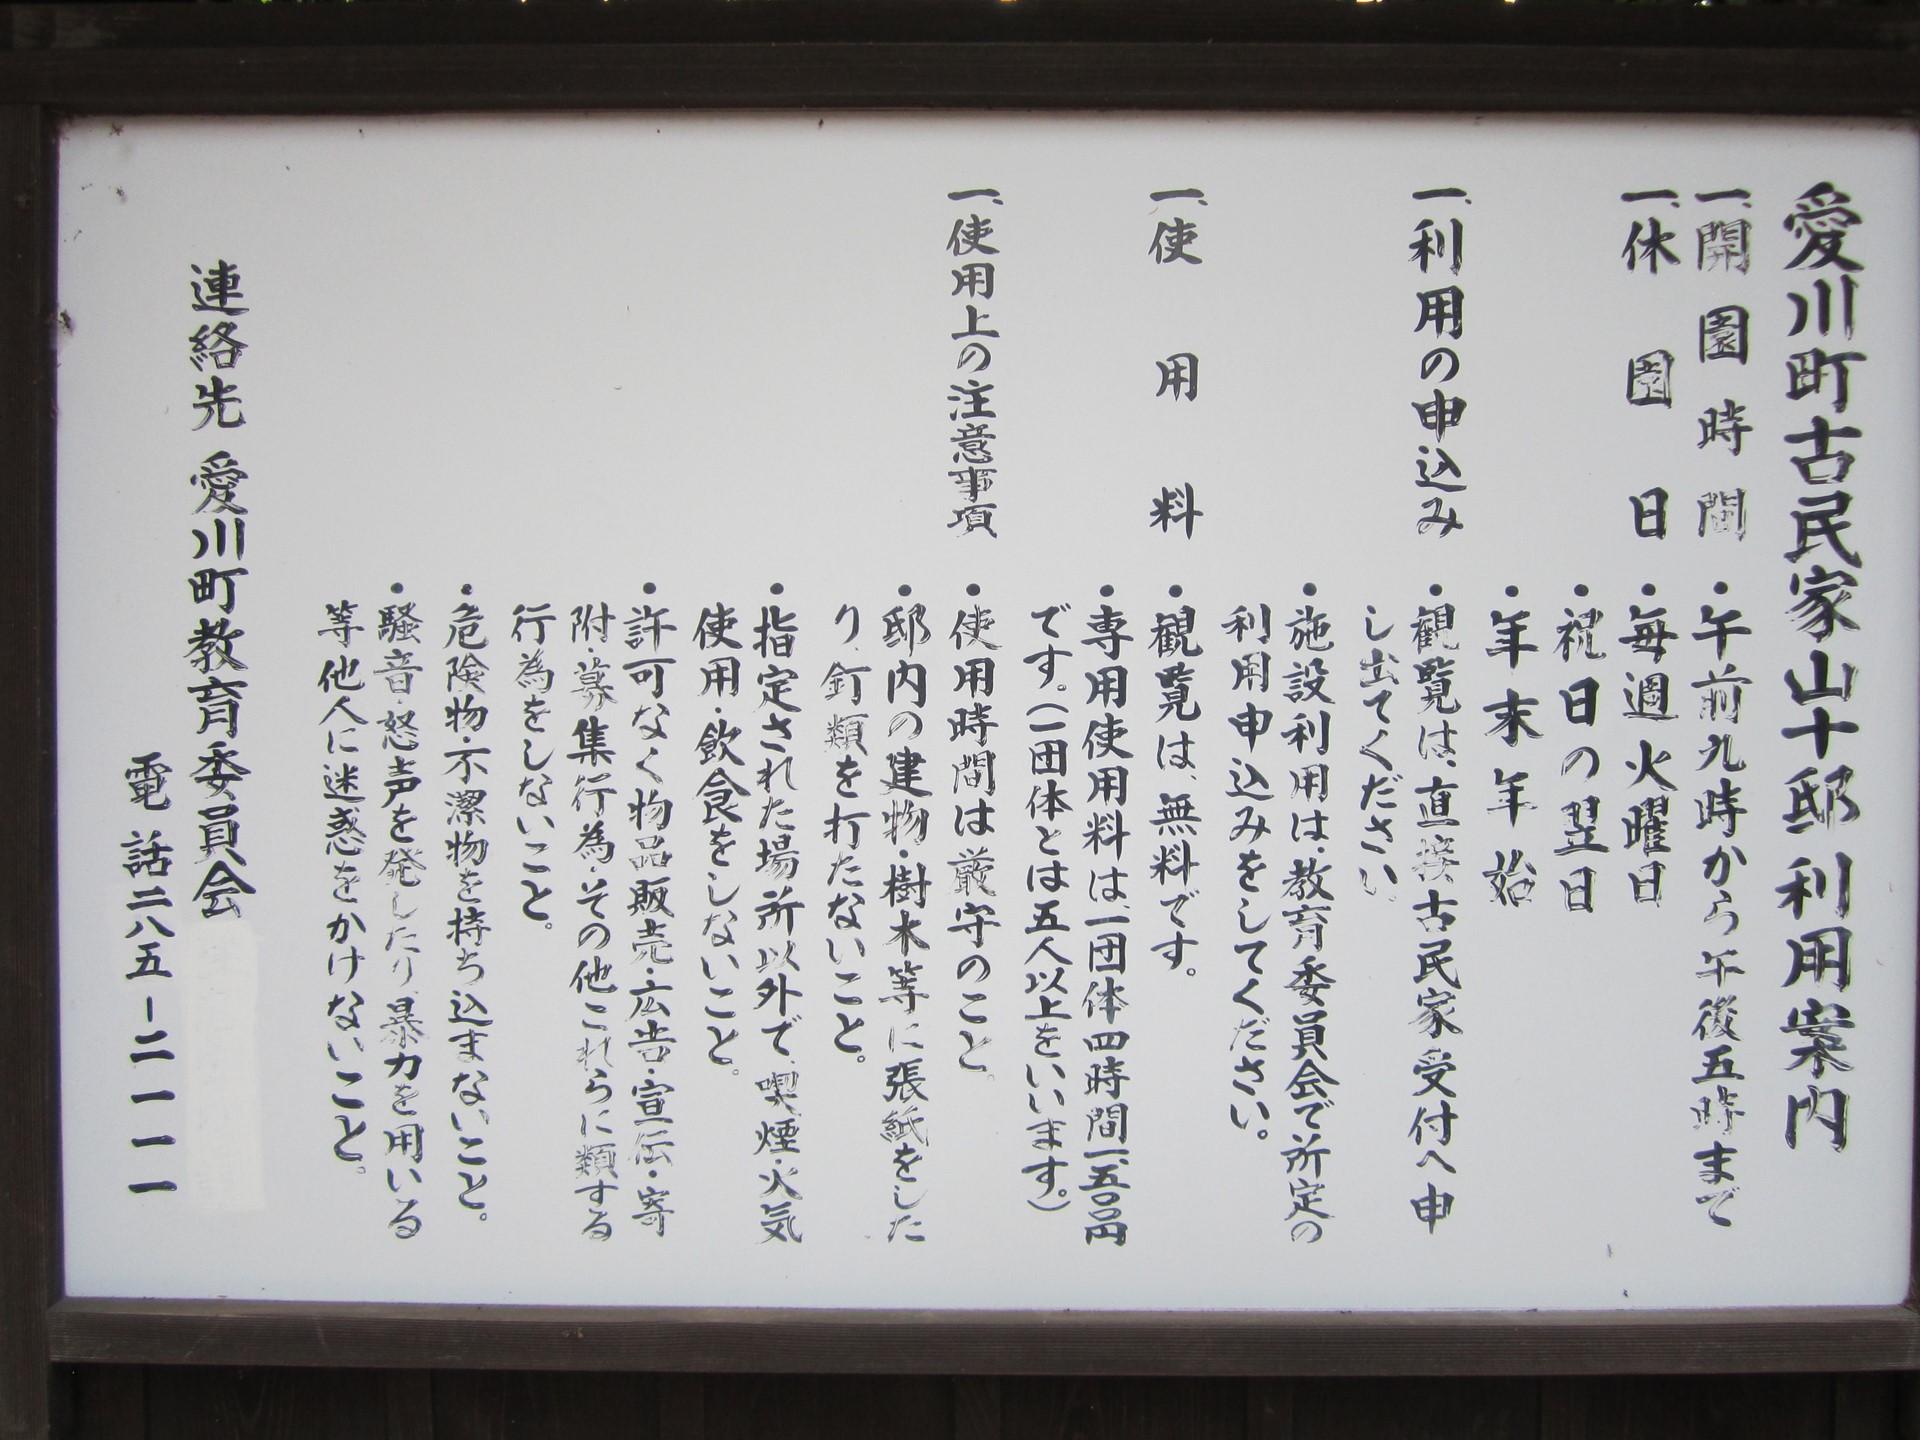 愛川町古民家山十邸利用案内
一、開園時間 ・午前九時から午後五時まで
一、休園日 ・毎週火曜日
・祝日の翌日
・年末年始
一、利用の申込み ・観覧は、直接古民家受付へ申
し出てください。
・施設利用は、教育委員会で所定の
利用申込みをしてください。
一、使用料 ・観覧は、無料です。
・専用使用料は、一団体四時間一、五〇〇円
です。(一団体とは五人以上をいいます。)
一、使用上の注意事項 ・使用時間は厳守のこと。
・邸内の建物・樹木等に張紙をした
り、釘類を打たないこと。
・指定された場所以外で、喫煙・火気
使用・飲食をしないこと。
・許可なく物品販売・広告・宣伝・寄
附・募集行為・その他これらに類する
行為をしないこと。
・危険物・不潔物を持ち込まないこと。
・騒音・怒声を発したり、暴力を用いる
等他人に迷惑をかけないこと。
連絡先 愛川町教育委員会
電話二八五-二一一一